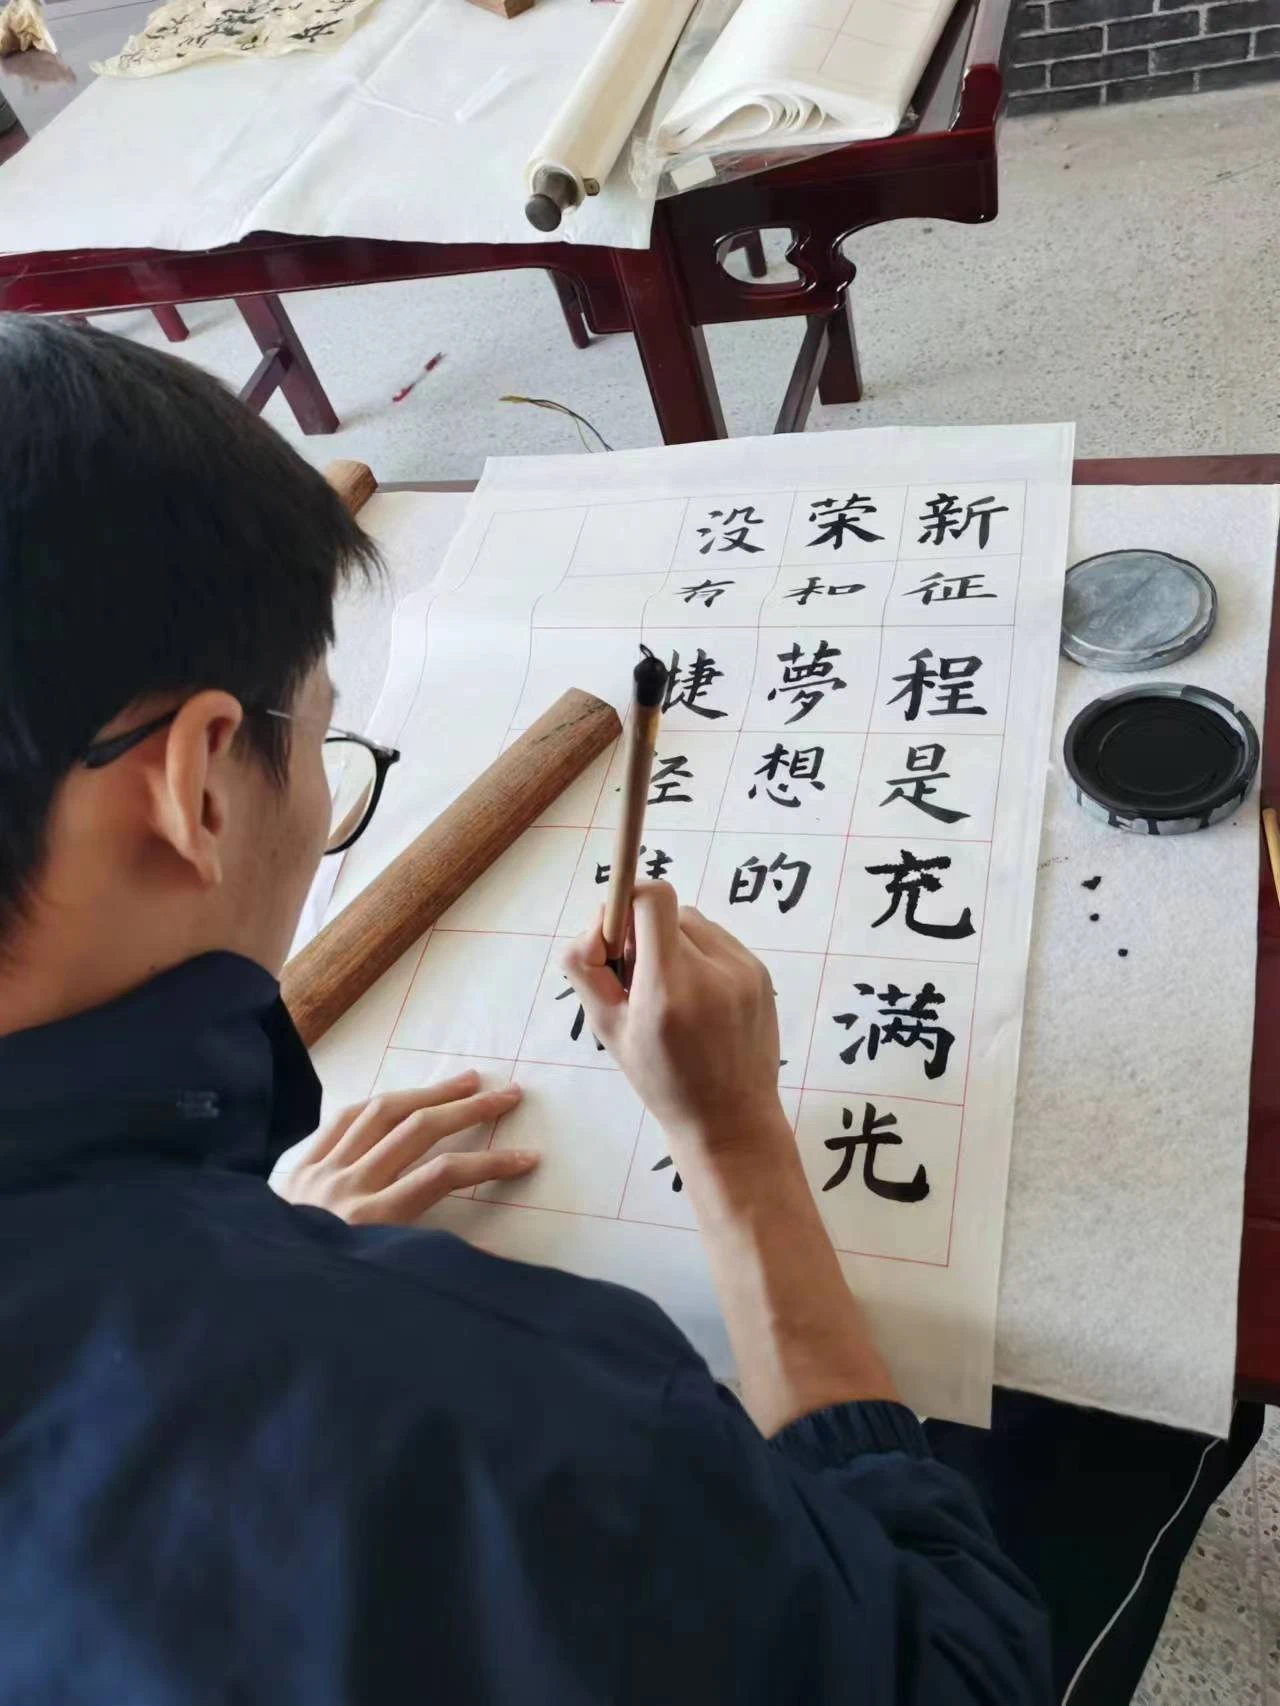 新征程是充满光
荣和夢想的
没有捷径唯